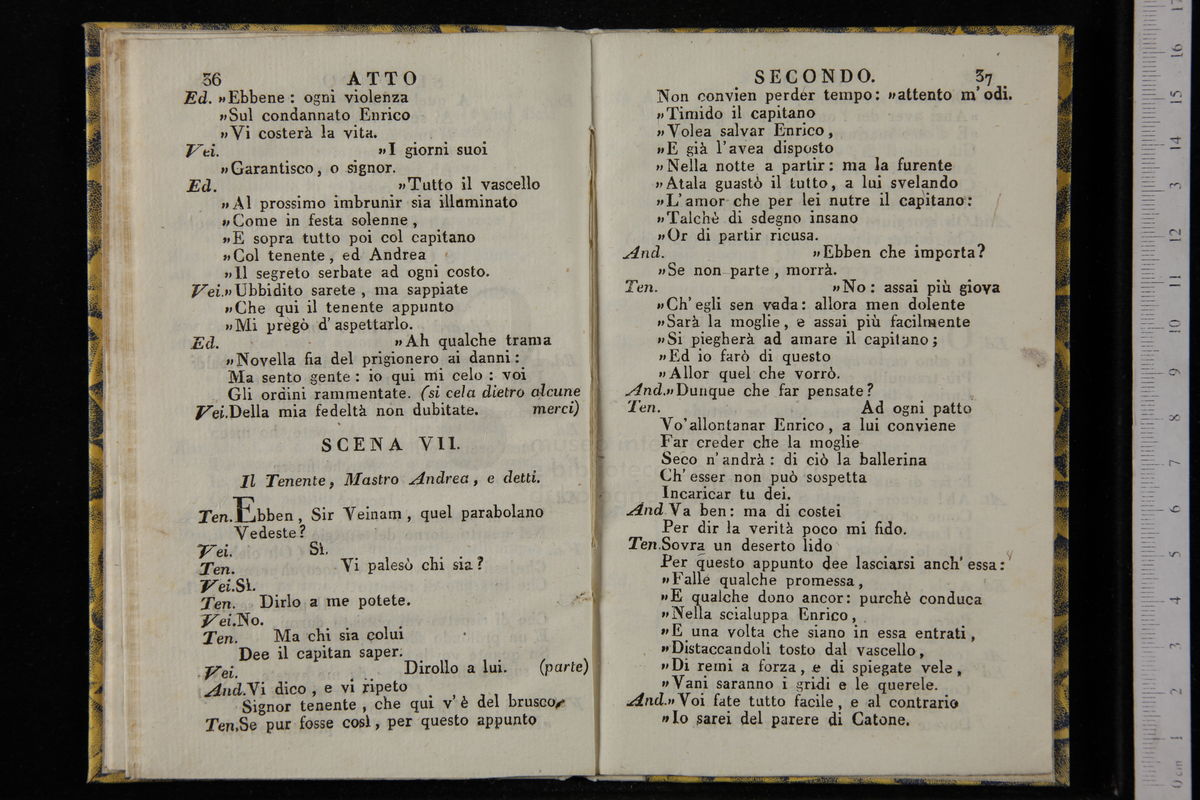 36 ATTO
Ed. »Ebbene : ogni violenza
»Sul condannato Enrico
»Vi costerà la vita.
Vei. »I giorni suoi
»Garantisco, o signor.
Ed. »Tutto il vascello
»Al prossimo imbrunir sia illuminato
»Come in festa solenne,
»E sopra tutto poi col capitano
»Col tenente, ed Andrea
»Il segreto serbate ad ogni costo.
Vei.»Ubbidito sarete, ma sappiate
»Che qui il tenente appunto
»Mi pregò d'aspettarlo.
Ed. »Ah qualche trama
»Novella fia del prigionero ai danni:
Ma sento gente: io qui mi celo: voi
Gli ordini rammentate. (si cela dietro alcune
Vei.Della mia fedeltà non dubitate. merci)
SCENA VII.
Il Tenente, Mastro Andrea, e detti.
Ten. Ebben, Sir Veinam, quel parabolano
Vedeste?
Vei. Sì.
Ten. Vi palesò chi sia?
Vei.Sì.
Ten. Dirlo a me potete.
Vei.No.
Ten. Ma chi sia colui
Dee il capitan saper.
Vei. Dirollo a lui. (parte)
And.Vi dico, e vi ripeto
Signor tenente, che qui v'è del brusco.
Ten.Se pur fosse così, per questo appunto
SECONDO. 37
Non convien perder tempo: »attento m'odi.
»Timido il capitano
»Volea salvar Enrico,
»E già l'avea disposto
»Nella notte a partir: ma la furente
»Atala guastò il tutto, a lui svelando
»L'amor che per lei nutre il capitano:
»Talchè di sdegno insano
»Or di partir ricusa.
And. »Ebben che importa?
»Se non parte, morrà.
Ten. »No: assai più giova
»Ch'egli sen vada: allora men dolente
»Sarà la moglie, e assai più facilmente
»Si piegherà ad amare il capitano;
»Ed io farò di questo
»Allor quel che vorrò.
And.»Dunque che far pensate?
Ten. Ad ogni patto
Vo'allontanar Enrico, a lui conviene
Far creder che la moglie
Seco n'andrà: di ciò la ballerina
Ch'esser non può sospetta
Incaricar tu dei.
And.Va ben: ma di costei
Per dir la verità poco mi fido.
Ten.Sovra un deserto lido
Per questo appunto dee lasciarsi anch'essa:
»Falle qualche promessa,
»E qualche dono ancor: purchè conduca
»Nella scialuppa Enrico,
»E una volta che siano in essa entrati,
»Distaccandoli tosto dal vascello,
»Di remi a forza, e di spiegate vele,
»Vani saranno i gridi e le querele.
And.»Voi fate tutto facile, e al contrario
»Io sarei del parere di Catone.